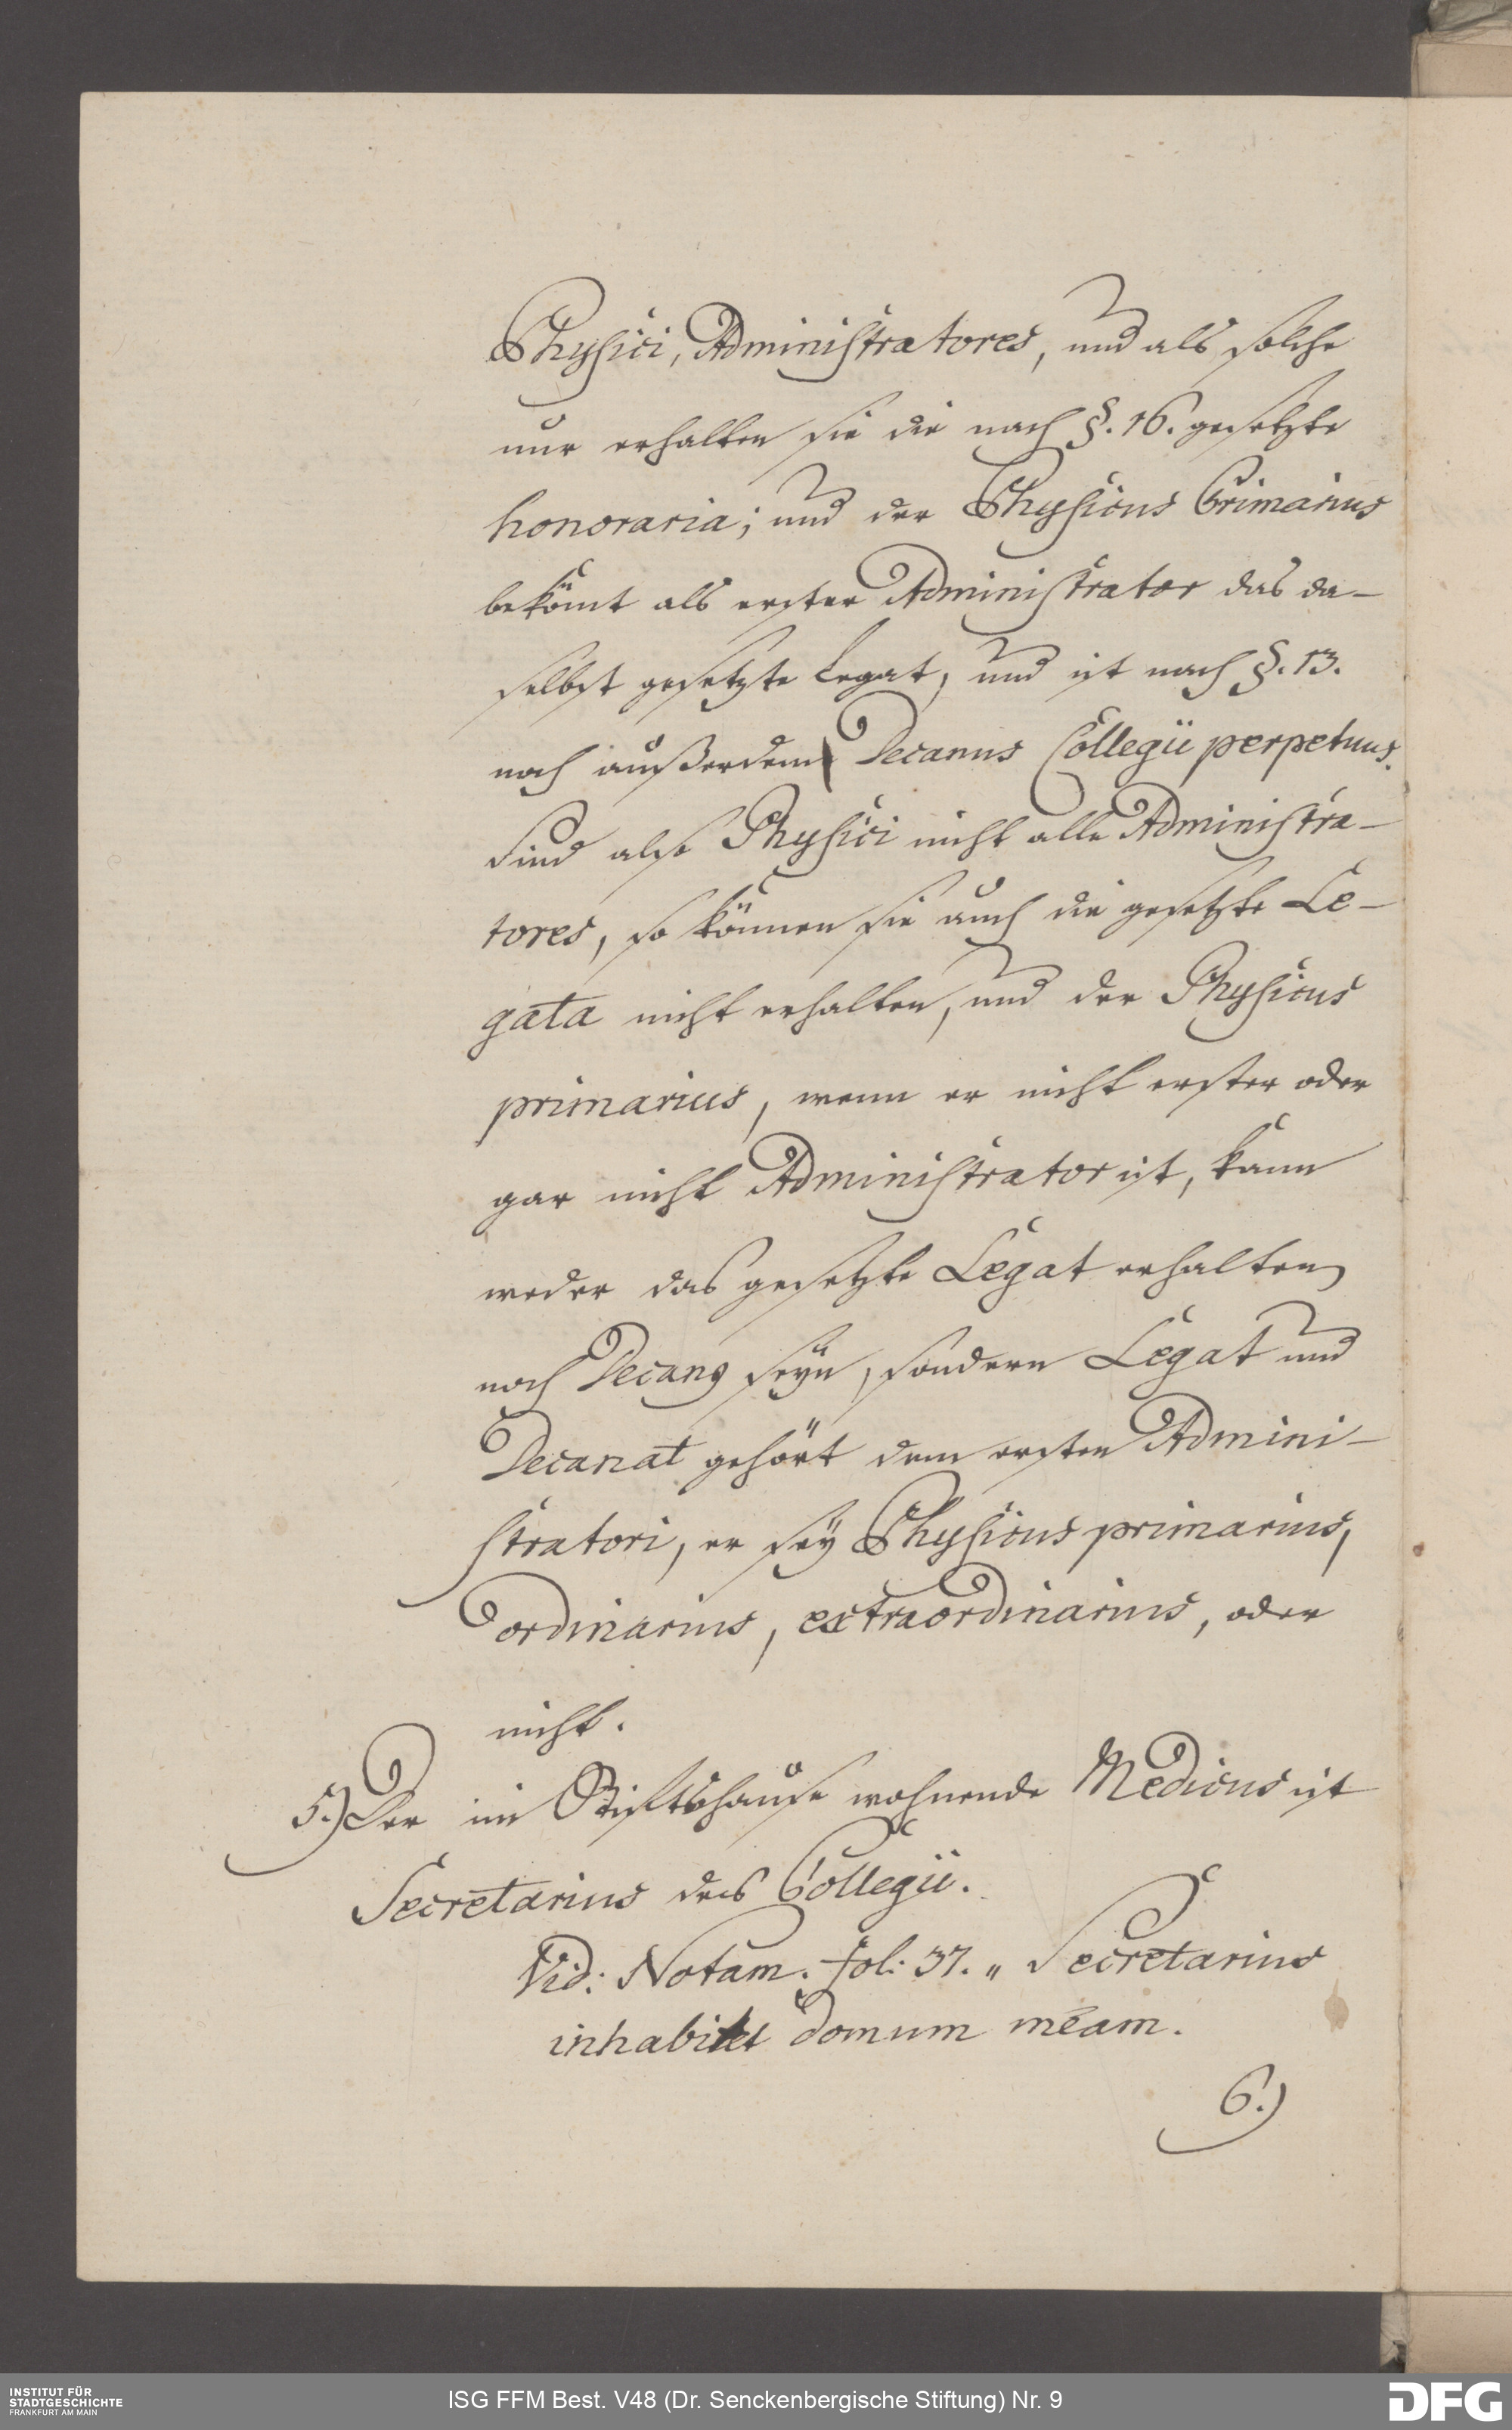 Physici, Administratores, und als solche
nur erhalten sie die nach §. 16. gesetzte
honoraria; und der Physicus Primarius
bekömt als erster Administrator das da-
selbst gesetzte Legat, und ist nach §. 13.
noch außerdem Decanus Collegii perpetuus.
Sind also Physici nicht alle Administra-
tores, so können sie auch die gesetzte Le-
gata nicht erhalten, und der Physicus
primarius, wenn er nicht erster oder
gar nicht Administrator ist, kann
weder das gesetzte Legat erhalten
noch Decang seyn, sondern Legat und
Decanat gehört dem ersten Admini-
stratori, er sey Physicus primarius,
ordinarius, extraordinarius, oder
nicht.
5.) Der im Stiftshause wohnende Medicus ist
Secretarius des Collegii.
Vid: Notam. fol: 37. „ Secretarius
inhabitet domum meam.
6.)
INSTITUT FÜR
STADTGESCHICHTE
FRANKFURT AM MAIN
ISG FFM Best. V48 (Dr. Senckenbergische Stiftung) Nr. 9
DFG